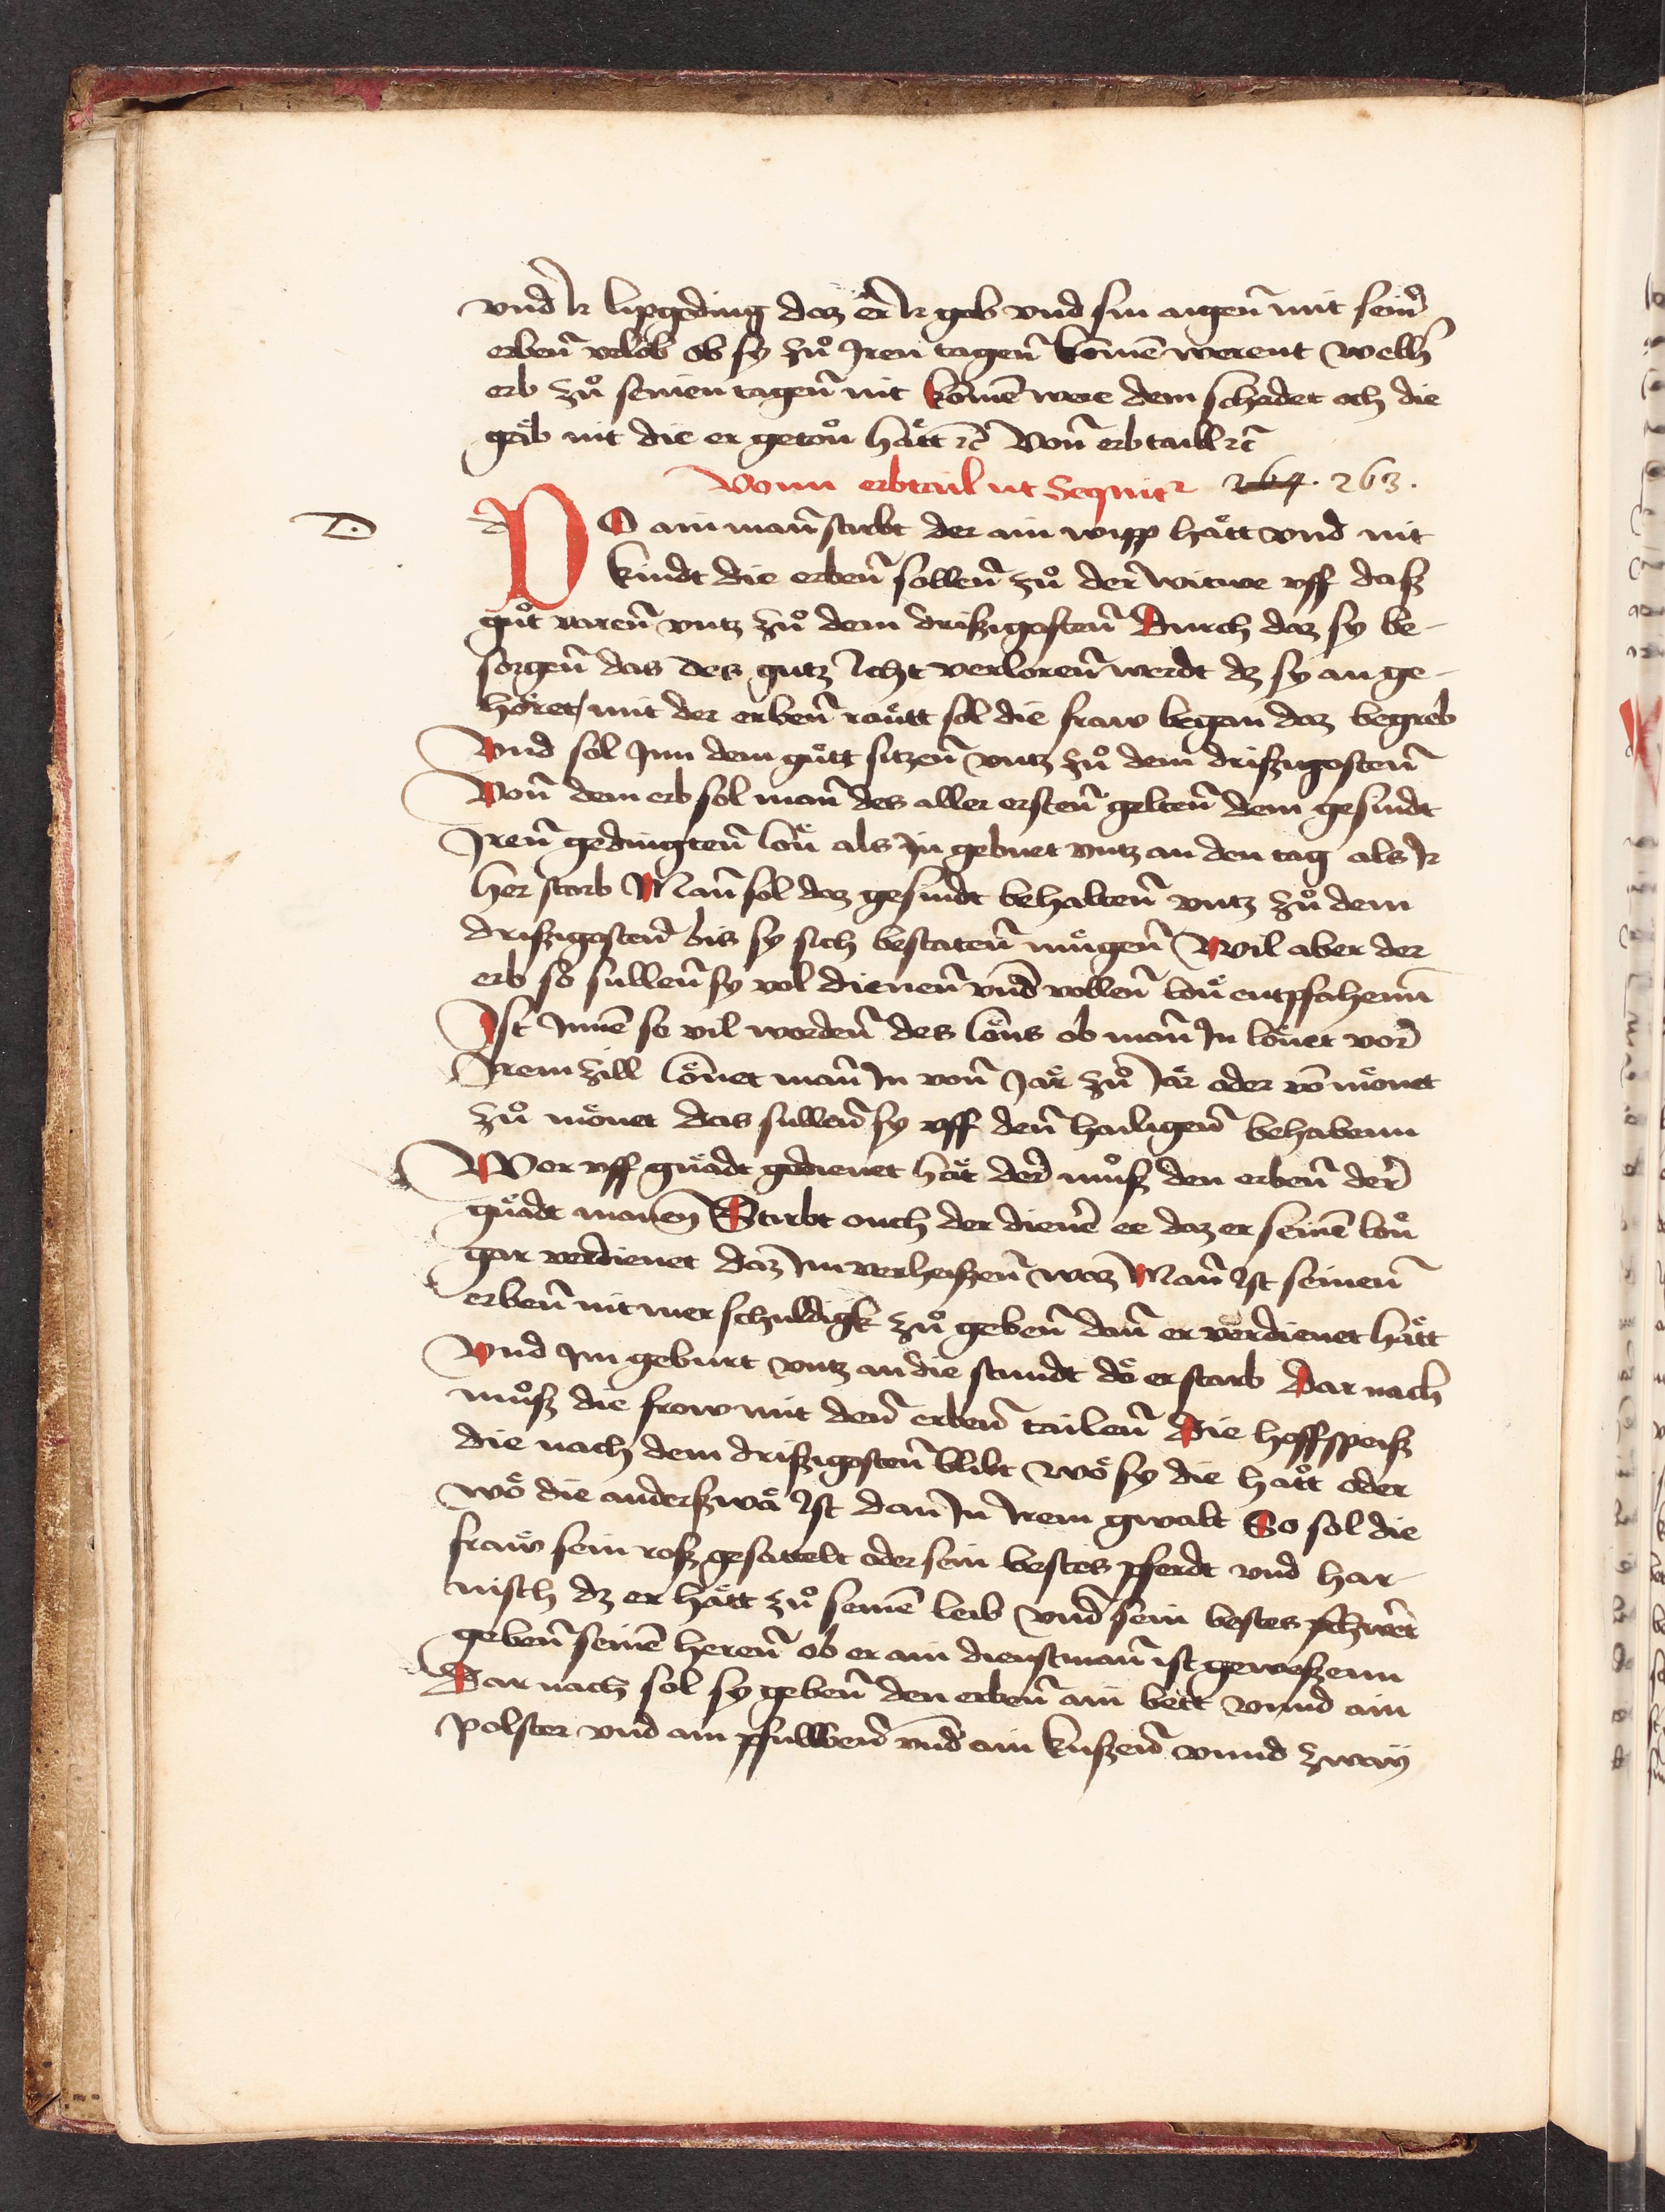 vnd Ir lipgeding daz er Ir gab vnd sin aigenn̄ mit seinr̄
erbenn̄ vrlob ob sy zů Jren tagenn̄ kom̄en werent welh̄
erb zů seinen tagenn̄ nit kom̄en were dem schadet och die
gäb nit die er getoň hätt ꝛc̄ Vonn̄ erbtaill ꝛc̄
Vonn erbtail ut Sequitᵣ 264. 263.
D.
DO ain mann̄ starbt der ain wipp hätt vnd nit
kindt die erbenn̄ sollenn̄ zů der witwe vff dasz
gůt varenn̄ vntz zů dem driszigostenn̄ Durch daz sy be-
sorgenn̄ das des gutz Icht verlorenn̄ werdt dz sy an ge-
höret, mit der erbenn̄ räutt sol die fraw began daz begreb
Vnd sol Jnn dem gůtt sitzenn̄ vntz zů dem driszigostenn̄
Vonn̄ dem erb sol mann̄ des aller erstenn̄ geltenn̄ dem gesindt
Jrenn̄ gedingtenn̄ lön̄ als In geburt vntz an den tag als Ir
her starb Mann̄ sol daz gesindt behaltenn̄ vntz zů dem
driszigostenn̄ bis sy sich bestatenn̄ mügenn̄ Wil aber der
erb so sullenn̄ sy vol dienenn̄ vnd vollenn̄ lön̄ entpfahenn
Ist Innen̄ so vil wordenn̄ des löns ob mann̄ In lönet vor
Irem zill lönet mann̄ In vonn̄ Jär zů Jär oder vō mönet
zů mönet das sullenn̄ sy vff denn̄ hailigenn̄ behabenn
Wer vff gnädt gedienet hät der můsz den erbenn̄ der
gnädt manen Stirbt ouch der diener̄ ee daz er seinen̄ lön̄
gar verdienet daz Im verheiszenn̄ waz Mann̄ Ist seinenn̄
erbenn̄ nit mer schuldigk zů gebenn̄ dann̄ er verdienet hätt
Vnd Im geburt vntz an die stundt dö er starb Dar nach
můsz die frow mit denn̄ erbenn̄ tailenn̄ Die hoffspeisz
die nach dem driszigostenn̄ blibt wö sy die hätt oder
wö die anderszwä Ist dann In Irem gwalt So sol die
fraw sein rosz gesattelt oder sein bestes pferdt vnd har-
nisch dz er hätt zů seinem̄ leib vnd sein bestes schwert
gebenn̄ seinem̄ herenn̄ ob er ain dienstmann̄ ist geweszenn
Dar nach sol sy gebenn̄ den erbenn̄ ain bett vnnd ain
polster vnd ain pfullbenn̄ vnd ain kuszenn̄ vnnd zway